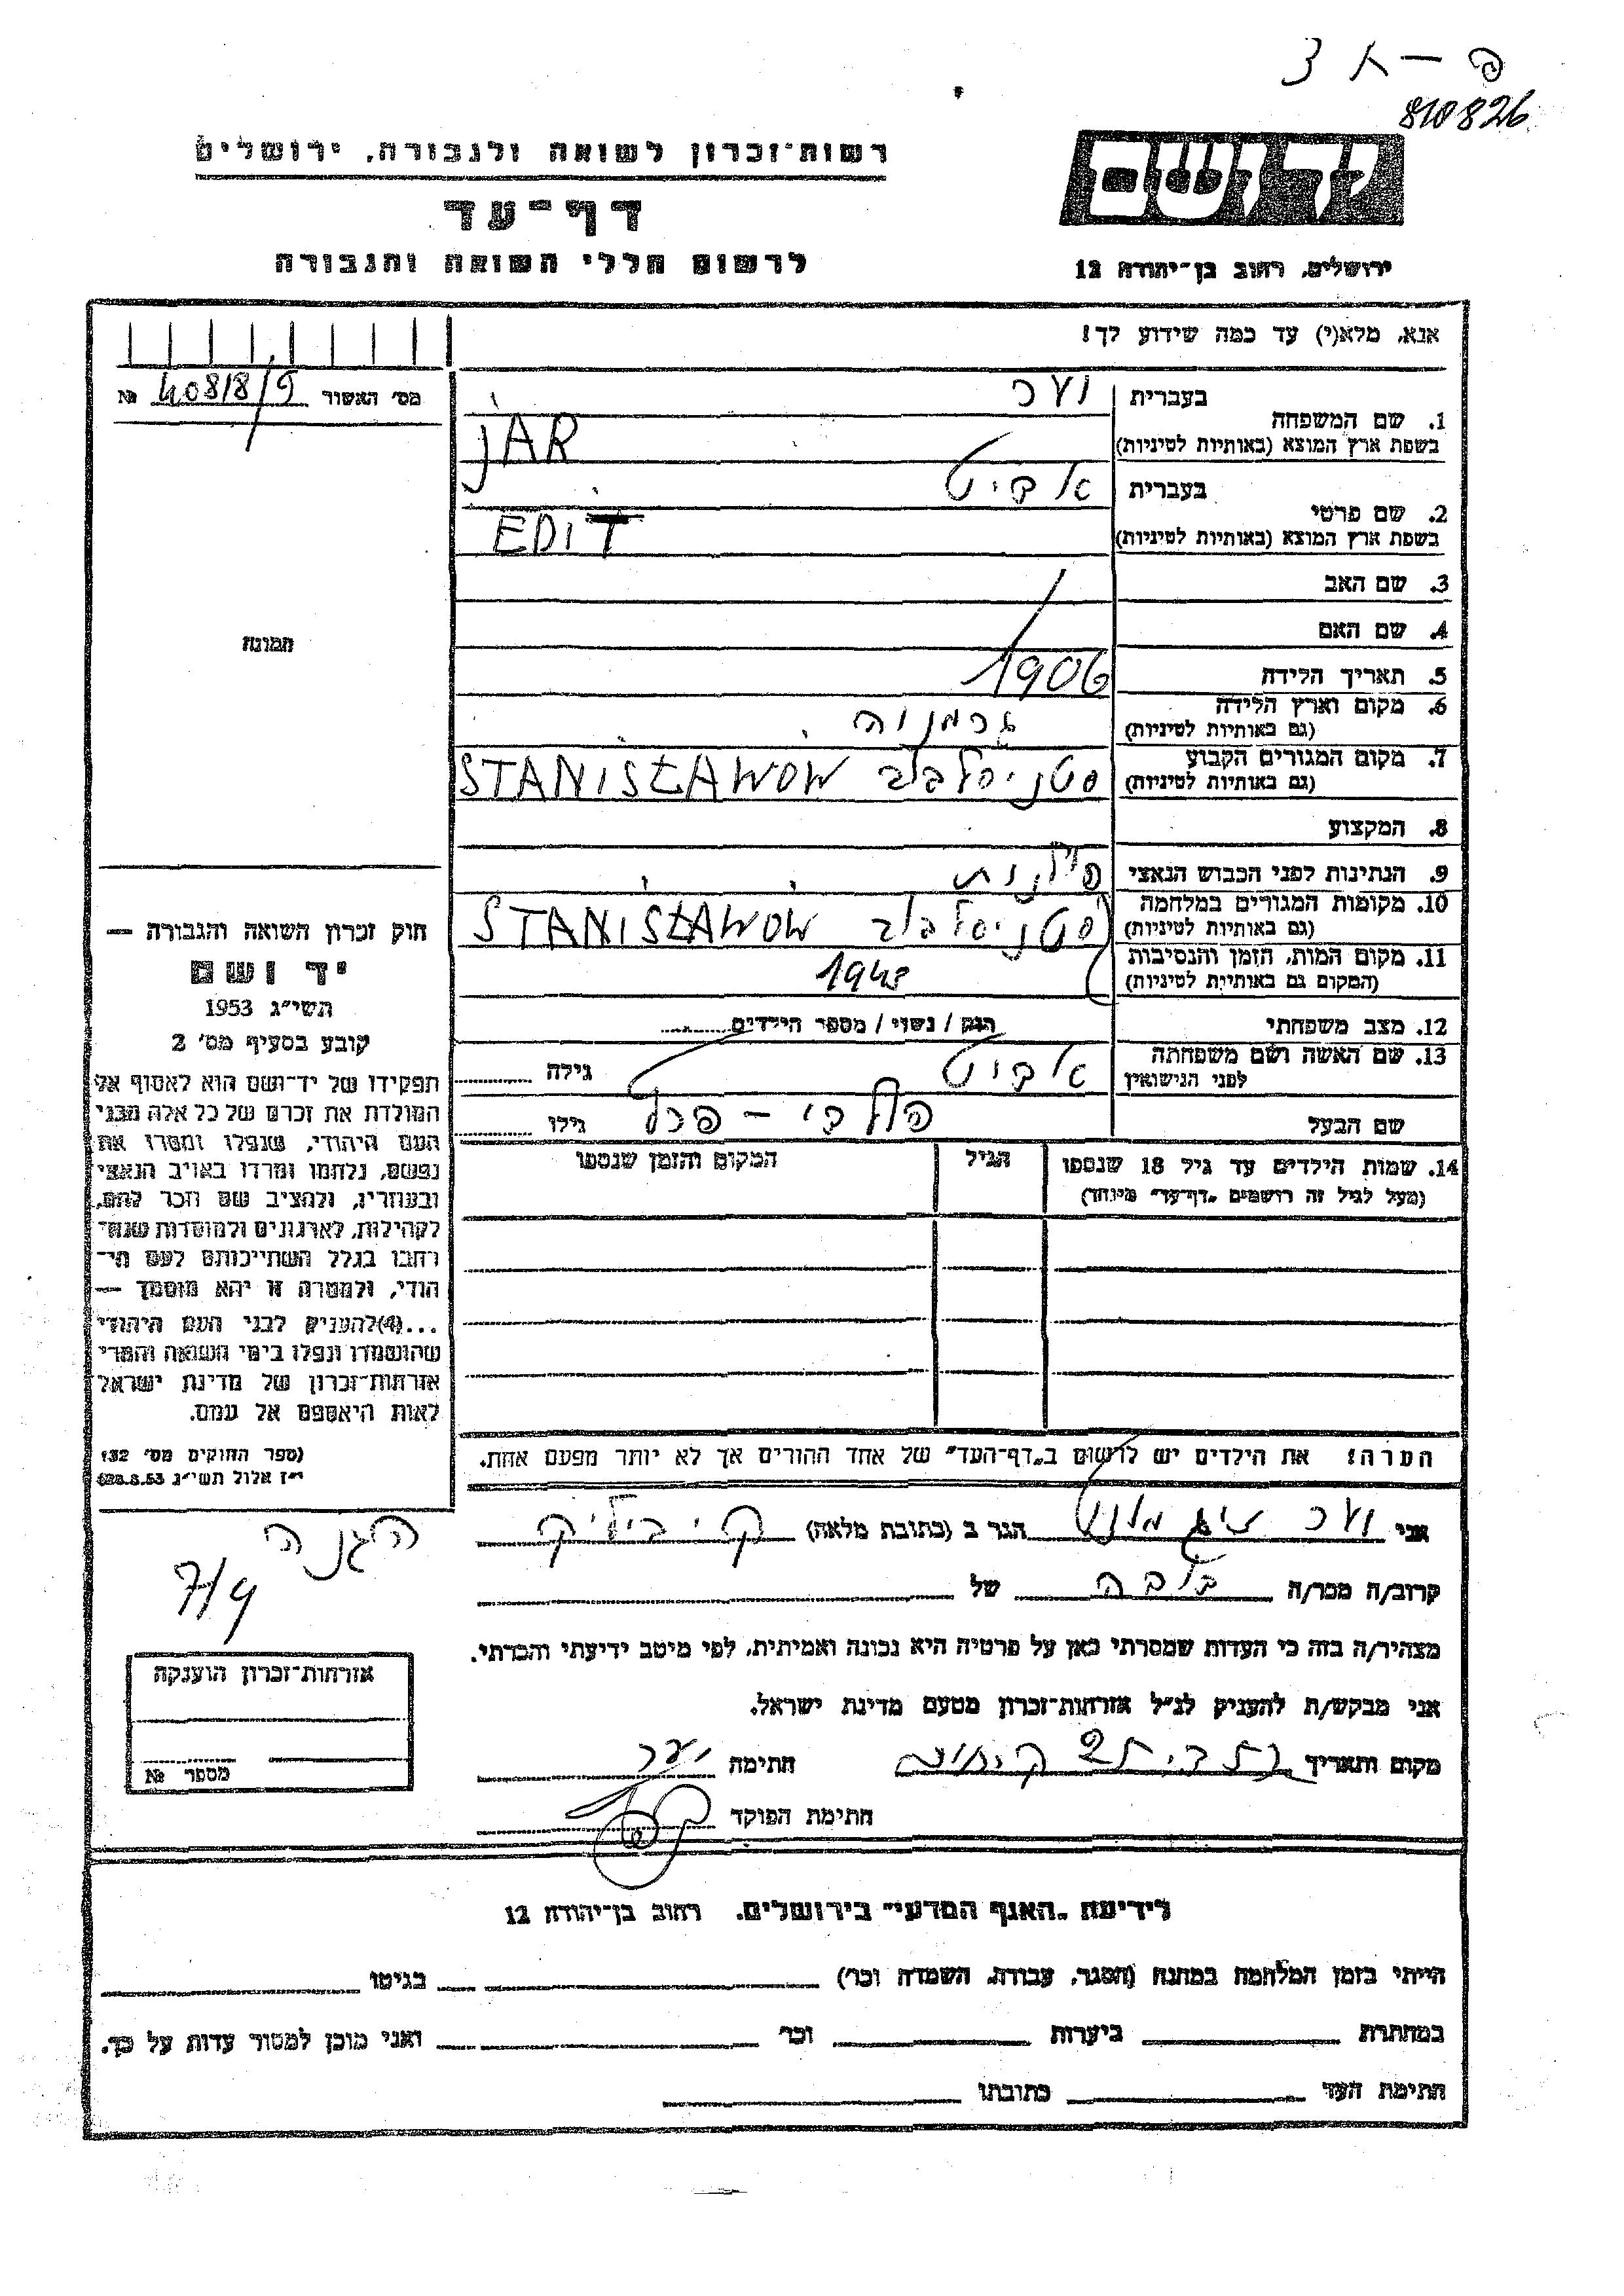 פ – א 3
810826
רשות־זכרון לשואה ולגבורה, ירושלים
דף־עד
לרשום חללי השואה והגבורה
יד ושם
ירושלים, רחוב בן־יהודה 12
אנא, מלא(י) עד כמה שידוע לך!
מס׳ האשור 40818/9 №
תמונה
1. שם המשפחה
בעברית יער
בשפת ארץ המוצא (באותיות לטיניות) JAR
2. שם פרטי
בעברית אדיט
בשפת ארץ המוצא (באותיות לטיניות) EDIT
3. שם האב
4. שם האם
5. תאריך הלידה 1906
6. מקום וארץ הלידה
(גם באותיות לטיניות) גרמניה
7. מקום המגורים הקבוע
(גם באותיות לטיניות) סטניסלבוב STANISŁAWOW
8. המקצוע
9. הנתינות לפני הכבוש הנאצי פולנית
10. מקומות המגורים במלחמה
(גם באותיות לטיניות) סטניסלבוב STANISŁAWOW
11. מקום המות, הזמן והנסיבות
(המקום גם באותיות לטיניות) 1943
12. מצב משפחתי רווק / נשוי / מספר הילדים
13. שם האשה ושם משפחתה
לפני הנישואין אדיט גילה
שם הבעל גילו
14. שמות הילדים עד גיל 18 שנספו הגיל המקום והזמן שנספו
(מעל לגיל זה רושמים „דף־עד״ מיוחד)
חוק זכרון השואה והגבורה —
יד ושם
תשי״ג 1953
קובע בסעיף מס׳ 2
תפקידו של יד־ושם הוא לאסוף אל
המולדת את זכרם של כל אלה מבני
העם היהודי, שנפלו ומסרו את
נפשם, נלחמו ומרדו באויב הנאצי
ובעוזריו, ולהציב שם וזכר להם,
לקהילות, לארגונים ולמוסדות שנח־
רבו בגלל השתייכותם לעם הי־
הודי, ולמטרה זו יהא מוסמך —
...(4)להעניק לבני העם היהודי
שהושמדו ונפלו בימי השואה והמרי
אזרחות־זכרון של מדינת ישראל
לאות היאספם אל עמם.
(ספר החוקים מס׳ 132
י״ז אלול תשי״ג 28.8.53)
הערה! את הילדים יש לרשום ב„דף־העד״ של אחד ההורים אך לא יותר מפעם אחת.
אני יער זיגמונט הגר ב (כתובת מלאה) ק. ביאליק
הגנה
7/9
קרוב/ה מכר/ה של
מצהיר/ה בזה כי העדות שמסרתי כאן על פרטיה היא נכונה ואמיתית, לפי מיטב ידיעתי והכרתי.
אני מבקש/ת להעניק לנ״ל אזרחות־זכרון מטעם מדינת ישראל.
מקום ותאריך חתימה יער
חתימת הפוקד
אזרחות־זכרון הוענקה
מספר №
לידיעת „האגף המדעי״ בירושלים. רחוב בן־יהודה 12
הייתי בזמן המלחמה במחנה (הסגר, עבודת, השמדה וכר׳) בגיטו
במחתרת ביערות וכר׳ ואני מוכן למסור עדות על כך.
חתימת העד כתובתו